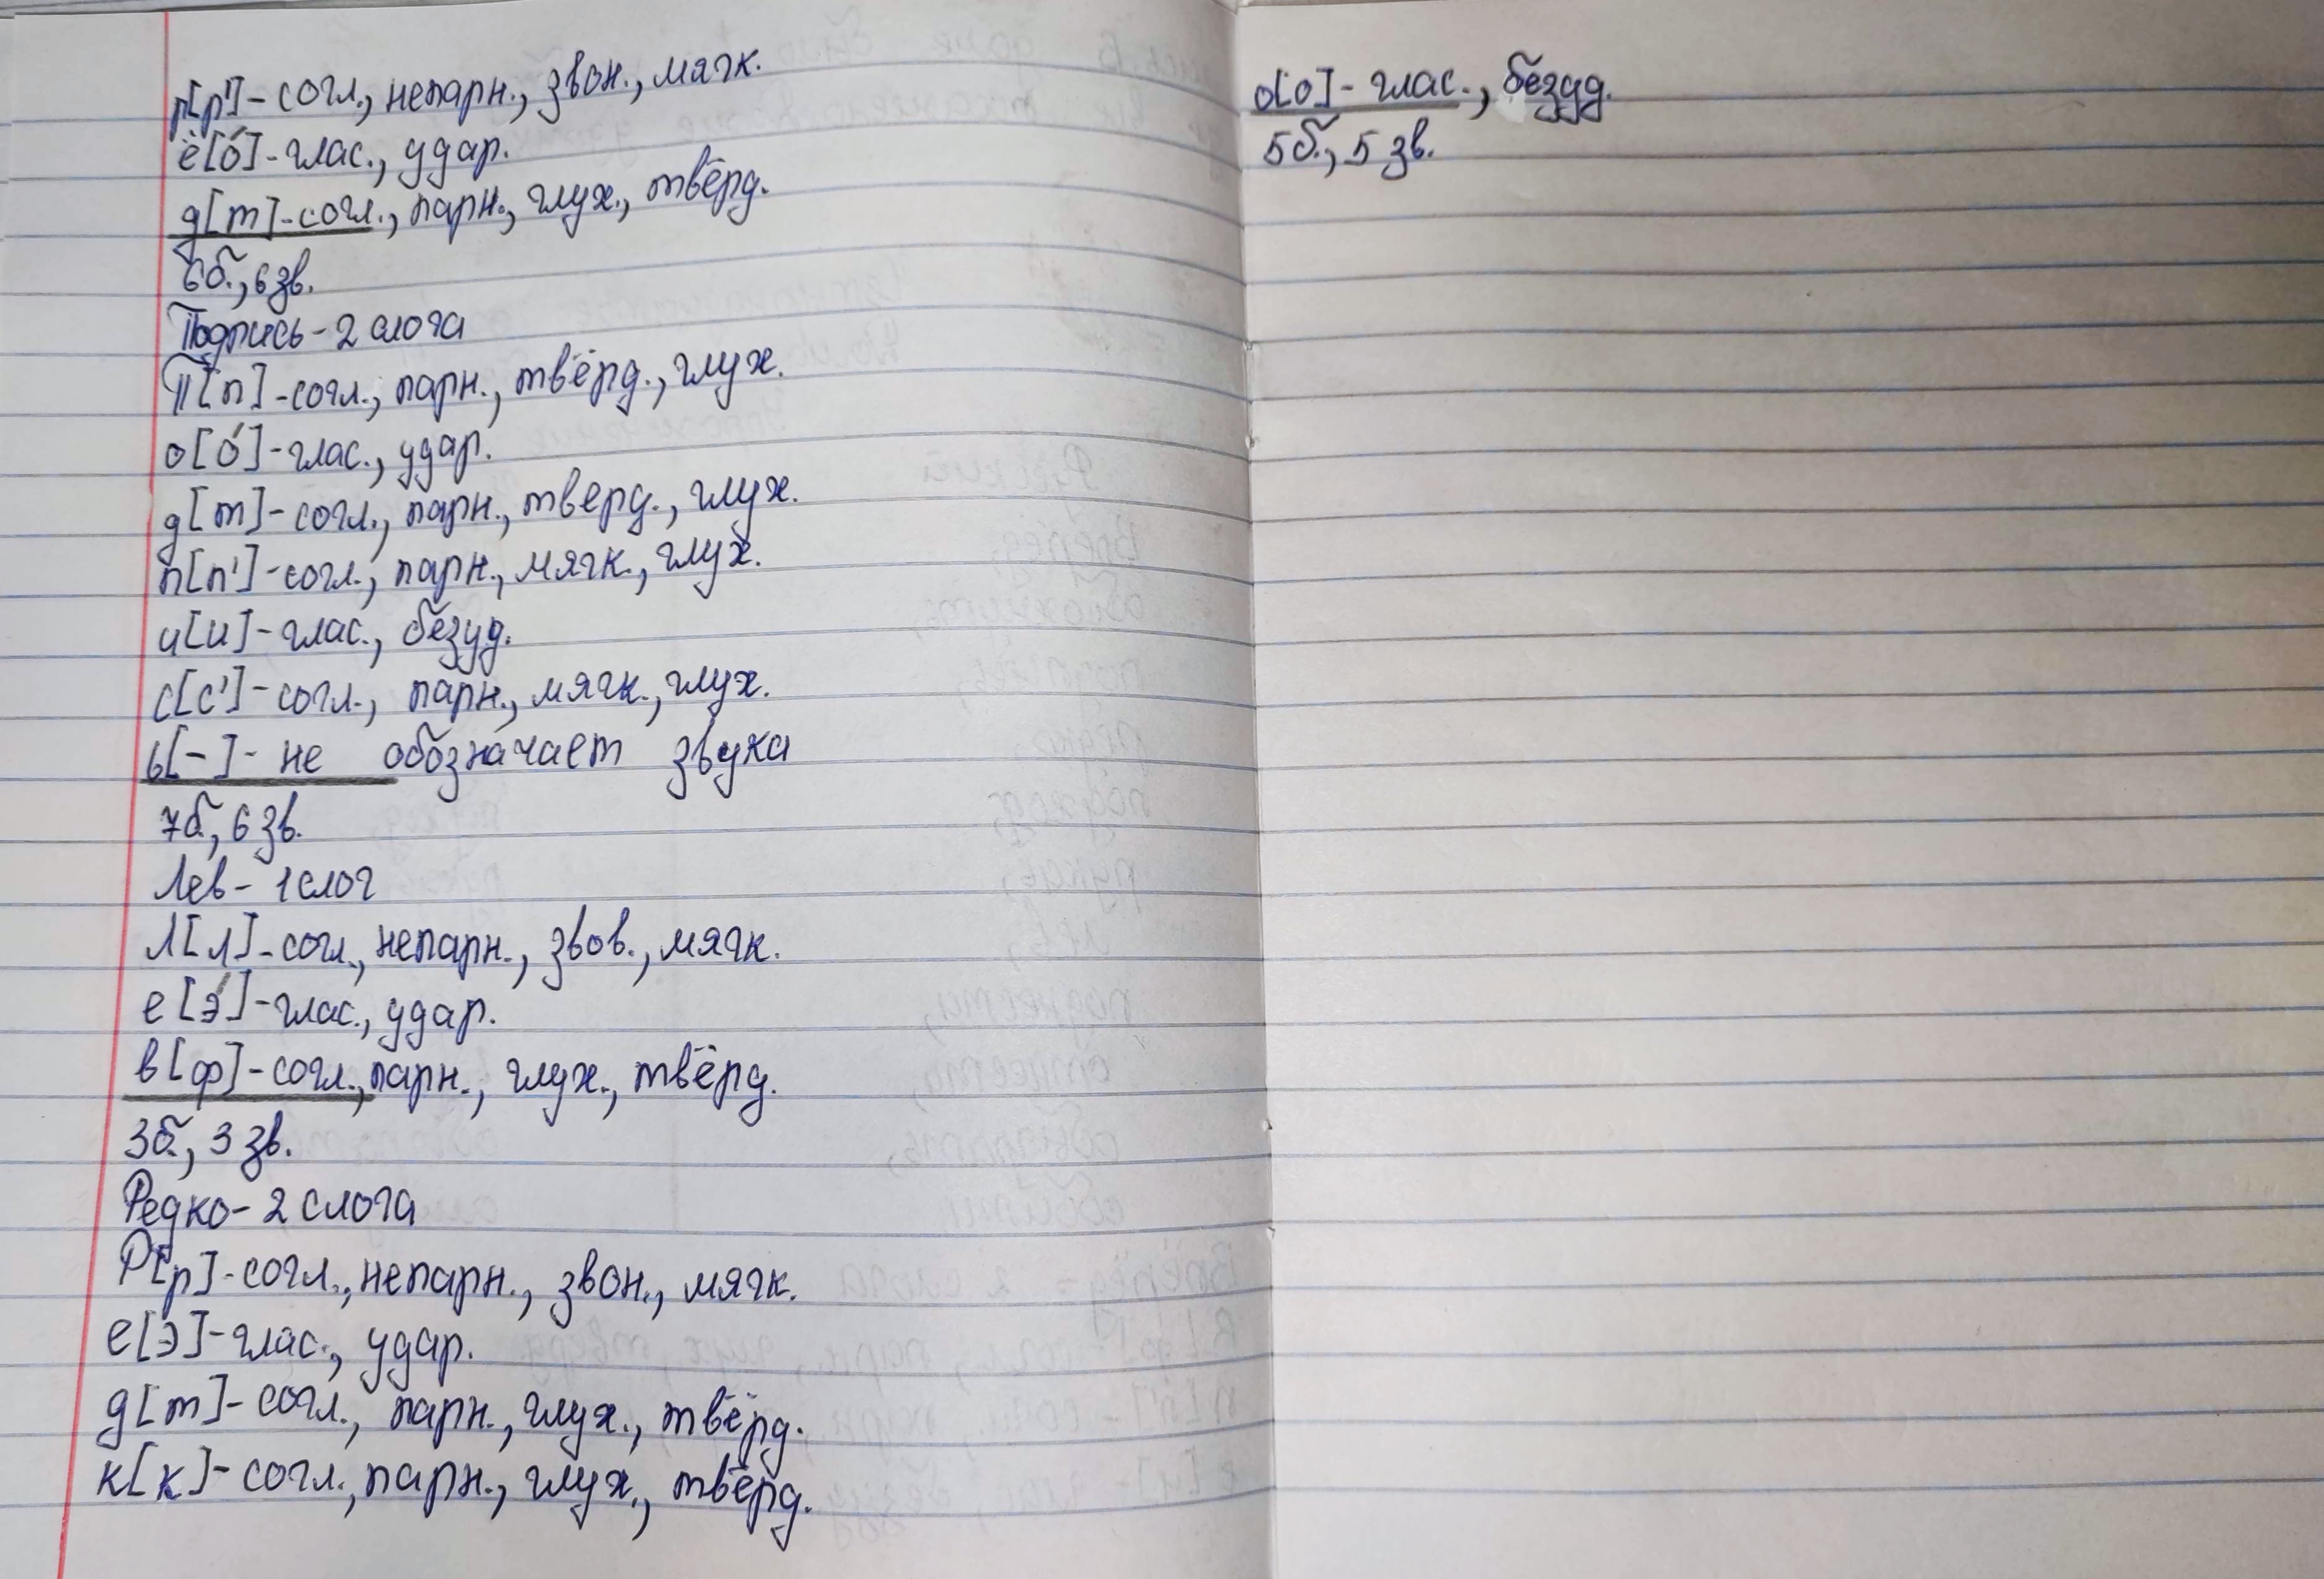 р[р']-согл., непарн., звон., мягк.
ё[о́]-глас., удар.
д[т]-согл., парн., глух., твёрд.
6б., 6зв.
Подпись-2 слога
П[п]-согл., парн., твёрд., глух.
о[о́]-глас., удар.
д[т]-согл., парн., тверд., глух.
п[п']-согл., парн., мягк., глух.
и[и]-глас., безуд.
с[с']-согл., парн., мягк., глух.
ь[-]- не обозначает звука
7б., 6 зв.
Лев- 1 слог
Л[л]-согл., непарн., звов., мягк.
е[э́]-глас., удар.
в[ф]-согл., парн., глух., твёрд.
3б., 3 зв.
Редко- 2 слога
Р[р]-согл., непарн., звон., мягк.
е[э]-глас., удар.
д[т]-согл., парн., глух., твёрд.
к[к]-согл., парн., глух., твёрд.
о[о]-глас., безуд.
5б., 5 зв.